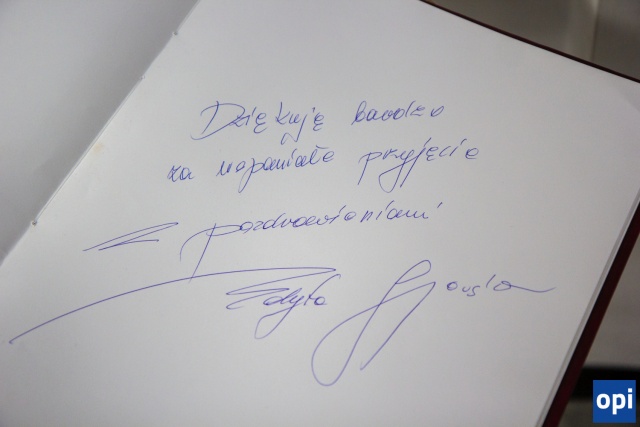 Dziękuję bardzo
za wspaniałe przyjęcie
Z pozdrowieniami
Edyta
opi